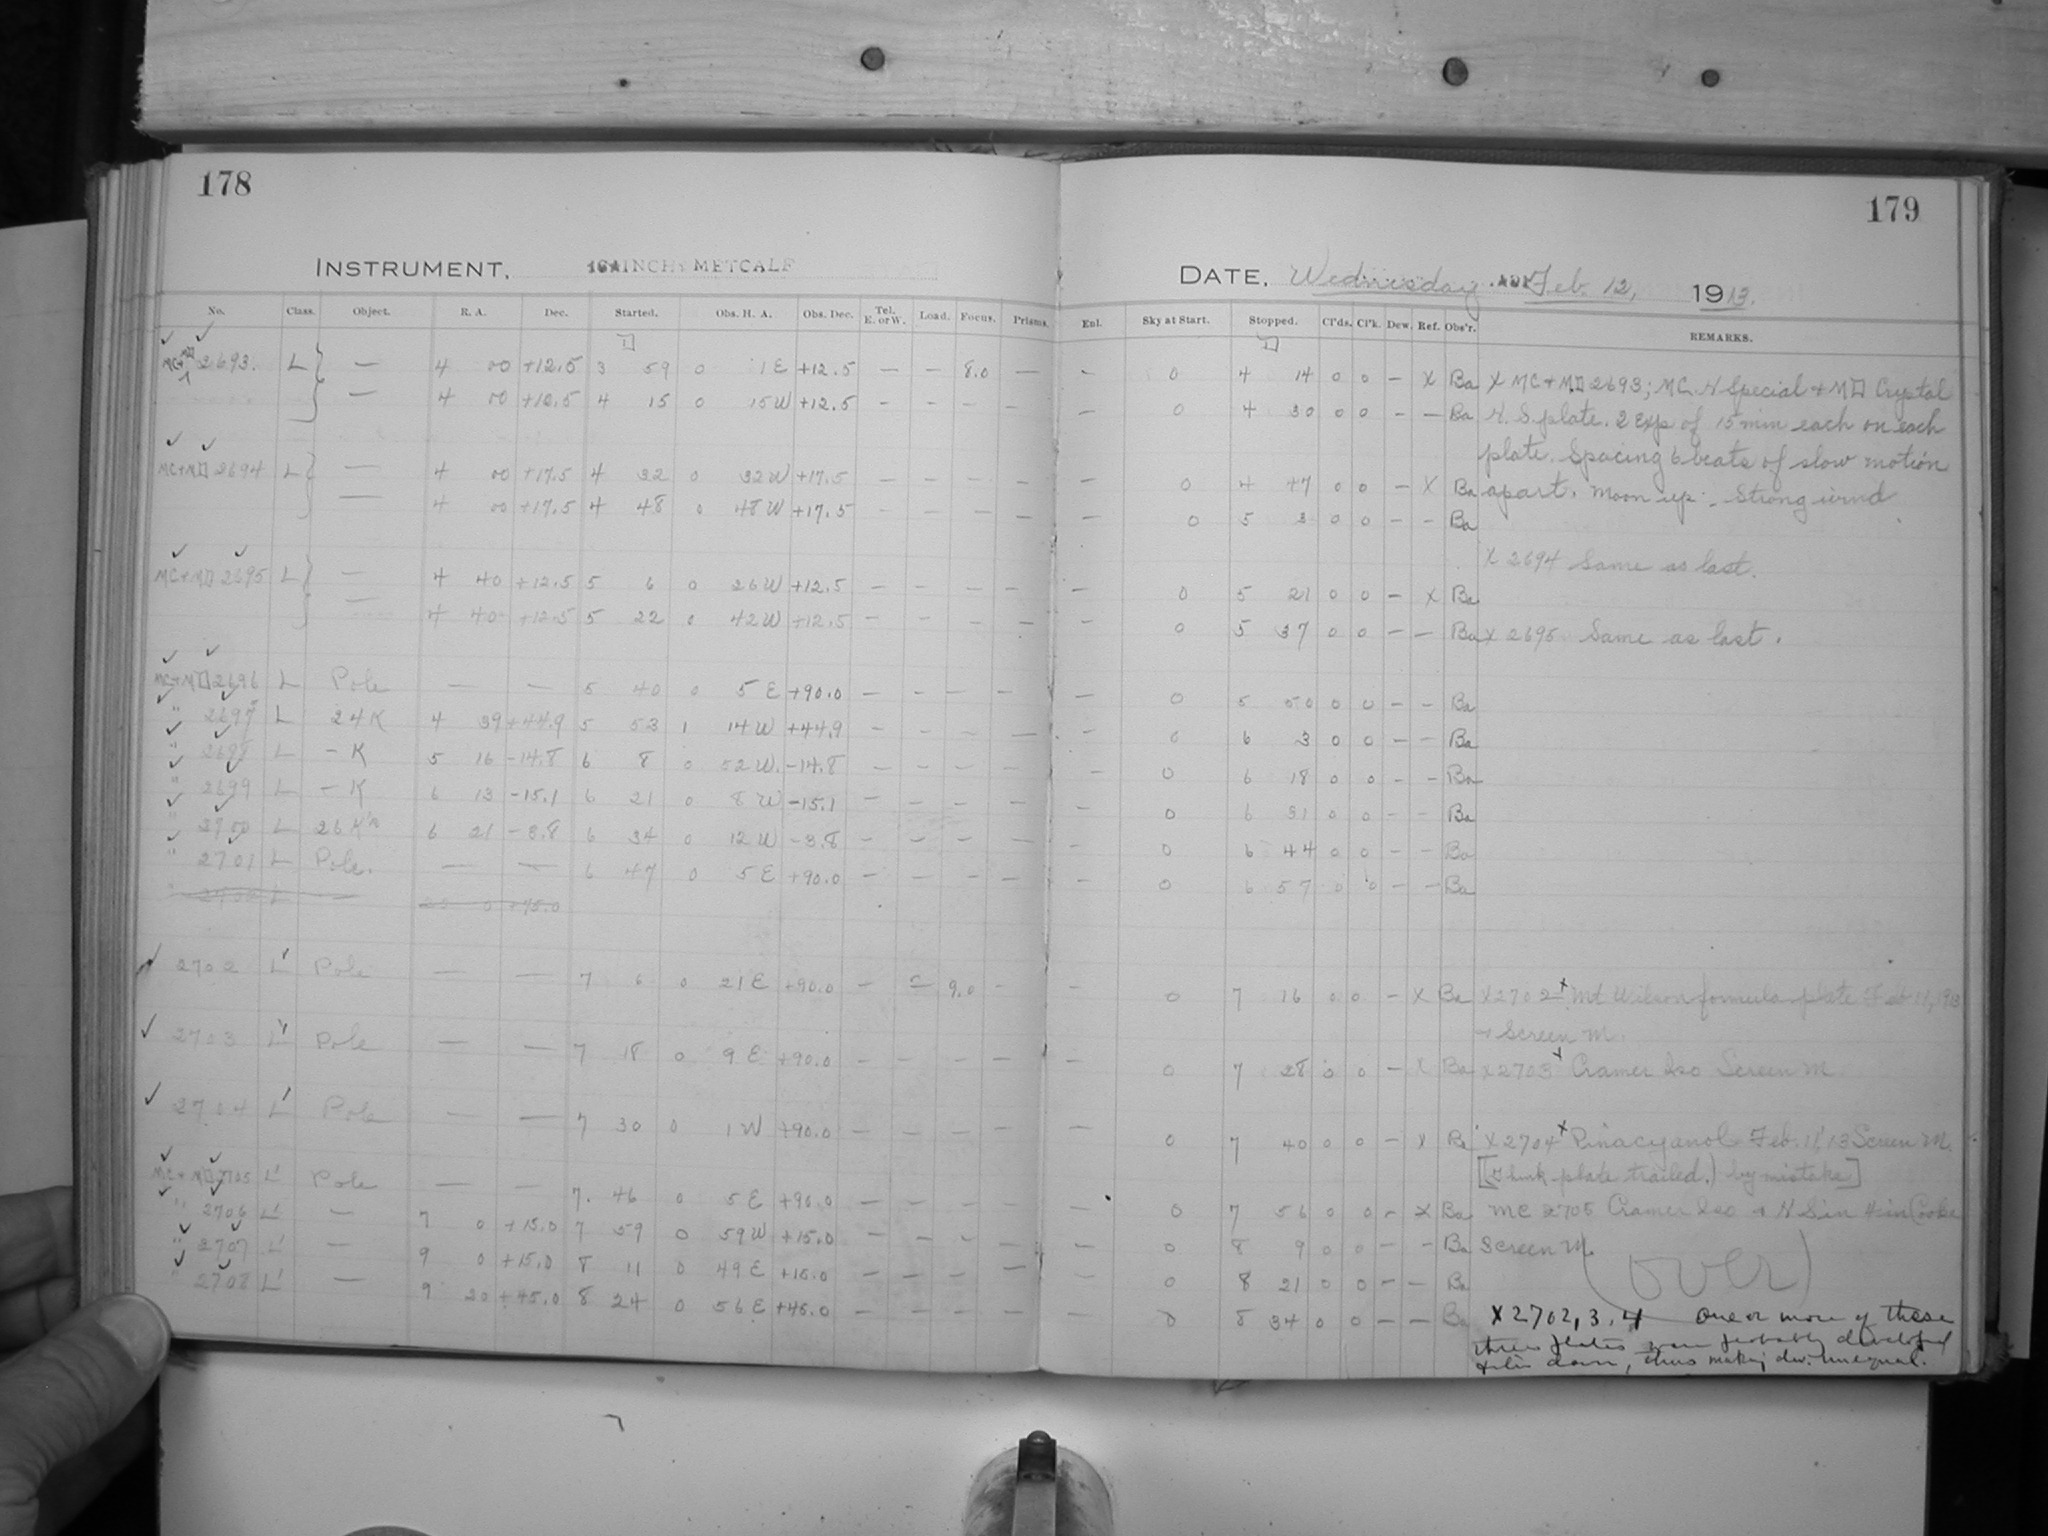 178
179
INSTRUMENT. 16 INCH METCALF
DATE. Wednesday Feb. 12, 1913.
No. Class. Object. R. A. Dec. Started. Obs. H. A. Obs. Dec. Tel. E. or W. Load. Focus. Prisms. Enl. Sky at Start. Stopped. Cl'ds. Cl'k. Dew. Ref. Obs'r. REMARKS.
MC+MD 2693. L — 4 00 +12.5 3 59 0 1 E +12.5 — — 8.0 — — 0 4 14 0 0 — X Ba X MC + MD 2693; MC N Special + MD Crystal
— 4 00 +12.5 4 15 0 15 W +12.5 — — — — — 0 4 30 0 0 — — Ba N. S. plate. 2 Exp of 15 min each on each
plate. Spacing 6 beats of slow motion
MC+MD 2694 L — 4 00 +17.5 4 32 0 32 W +17.5 — — — — — 0 4 47 0 0 — X Ba apart. Moon up. Strong wind
— 4 00 +17.5 4 48 0 48 W +17.5 — — — — — 0 5 3 0 0 — — Ba
X 2694 Same as last.
MC+MD 2695 L — 4 40 +12.5 5 6 0 26 W +12.5 — — — — — 0 5 21 0 0 — X Ba
— 4 40 +12.5 5 22 0 42 W +12.5 — — — — — 0 5 37 0 0 — — Ba X 2695 Same as last.
MC+MD 2696 L Pole — — 5 40 0 5 E +90.0 — — — — — 0 5 50 0 0 — — Ba
" 2697 L 24 K 4 39 +44.9 5 53 1 14 W +44.9 — — — — — 0 6 3 0 0 — — Ba
" 2698 L — K 5 16 -14.8 6 8 0 52 W. -14.8 — — — — — 0 6 18 0 0 — — Ba
" 2699 L — K 6 13 -15.1 6 21 0 8 W -15.1 — — — — — 0 6 31 0 0 — — Ba
" 2700 L 26 K 6 21 -3.8 6 34 0 12 W -3.8 — — — — — 0 6 44 0 0 — — Ba
" 2701 L Pole. — — 6 47 0 5 E +90.0 — — — — — 0 6 57 0 0 — — Ba
2702 L — 0 +75.0
2702 L' Pole — — 7 6 0 21 E +90.0 — — 9.0 — — 0 7 16 0 0 — X Ba X 2702 Mt Wilson formula plate Feb 11, 1913
Screen M.
2703 L' Pole — — 7 18 0 9 E +90.0 — — — — — 0 7 28 0 0 — X Ba X 2703 Cramer Iso Screen M
2704 L' Pole — — 7 30 0 1 W +90.0 — — — — — 0 7 40 0 0 — X Ba X 2704 Pinacyanol Feb. 11, 13 Screen M.
[Think plate trailed.) by mistake]
MC+MD 2705 L' Pole — — 7. 46 0 5 E +90.0 — — — — — 0 7 56 0 0 — X Ba MC 2705 Cramer Iso + N S in 4 in Cooke
" 2706 L' — 7 0 +15.0 7 59 0 59 W +15.0 — — — — — 0 8 9 0 0 — — Ba Screen M.
" 2707 L' — 9 0 +15.0 8 11 0 49 E +15.0 — — — — — 0 8 21 0 0 — — Ba (over)
" 2708 L' — 9 20 +45.0 8 24 0 56 E +45.0 — — — — — 0 8 34 0 0 — — Ba X 2702, 3. 4 One or more of these
three plates were probably developed
film down, thus making dev. unequal.